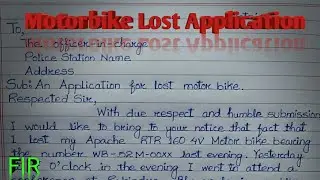 Motorbike Lost Application
To,
The officer in-charge
Police Station Name
Address
Sub: An Application for lost motor bike.
Respected Sir,
With due respect and humble submission
I would like to bring to your notice that fact that
lost my Apache RTR 160 4V Motor bike bearing
the number WB-52M-00XX last evening. Yesterday
O'clock in the evening I went to attend a
FIR